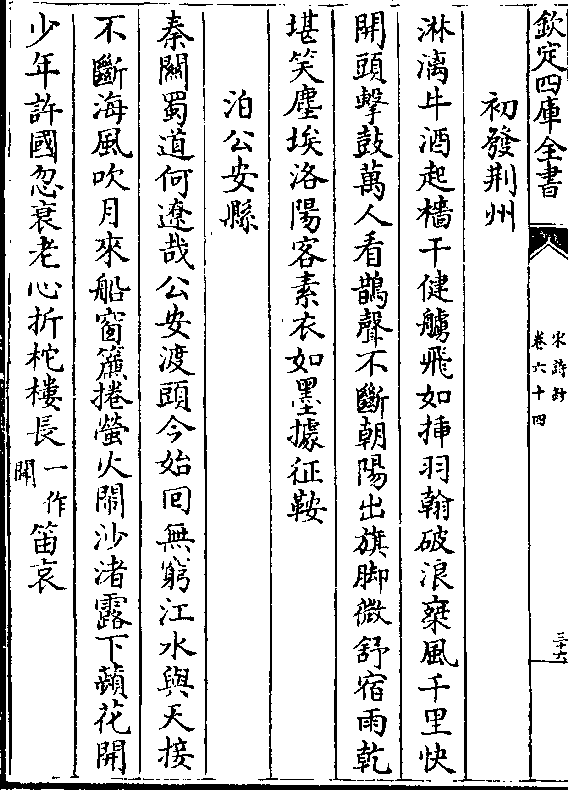 欽定四庫全書
宋詩鈔
卷六十四
三十六
初發荆州
淋漓牛酒起檣干健艣飛如揷羽翰破浪乗風千里快
開頭擊鼓萬人看鵲聲不斷朝陽出旗脚微舒宿雨乾
堪笑塵埃洛陽客素衣如墨據征鞍
泊公安縣
秦關蜀道何遼哉公安渡頭今始回無窮江水與天接
不斷海風吹月來船窗簾捲螢火鬧沙渚露下蘋花開
少年許國忽衰老心折柁樓長一作聞笛哀